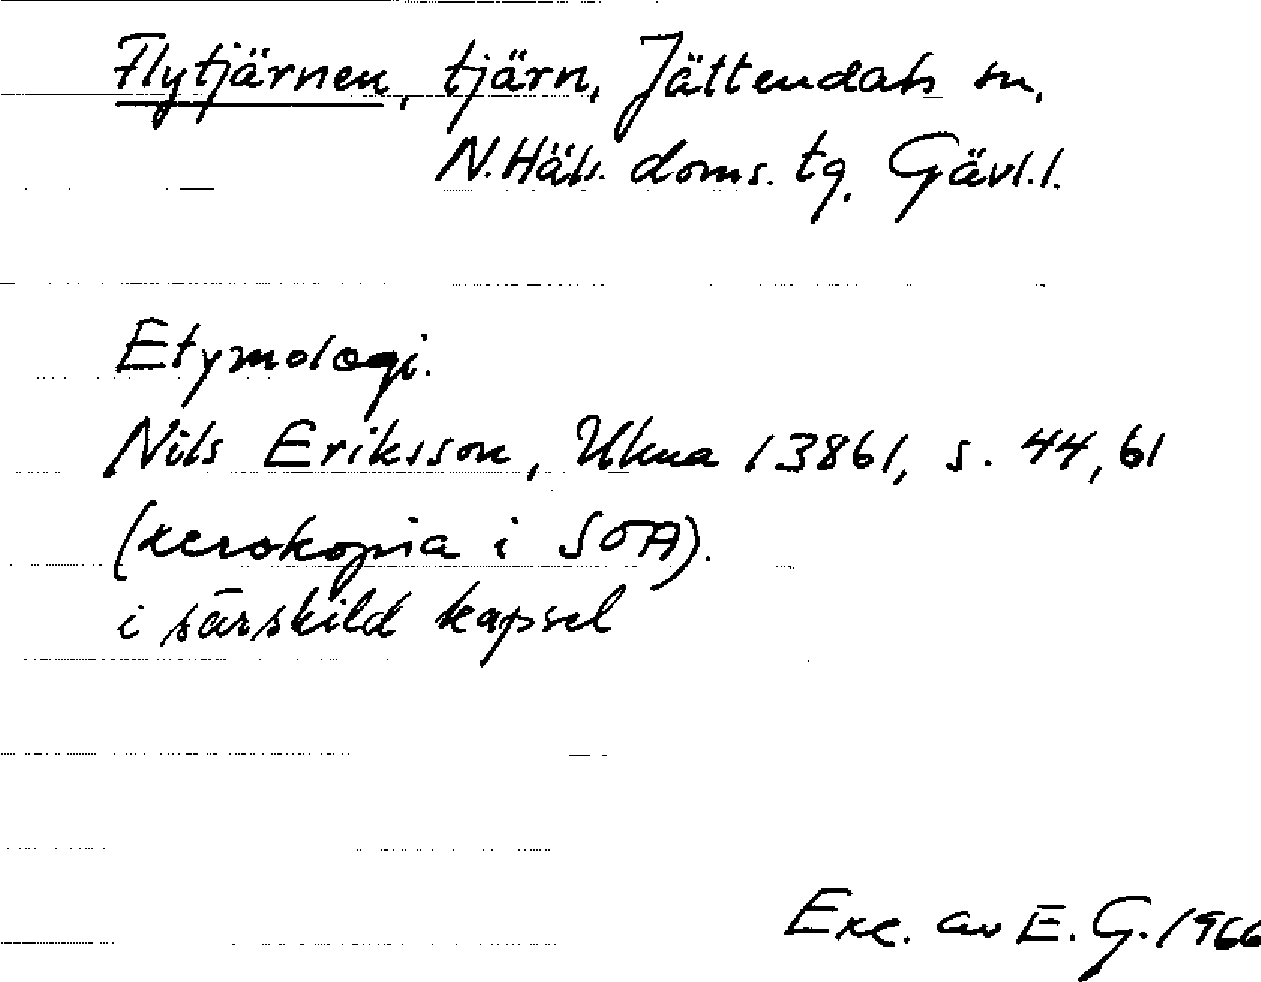 Flytjärnen, tjärn, Jättendals sn,
N. Häls. doms. tg. Gävl. l.
Etymologi.
Nils Eriksson, Ukna 13861, s. 44, 61
(xerokopia i SOA).
i särskild kapsel
Exc. av E. G. 1966